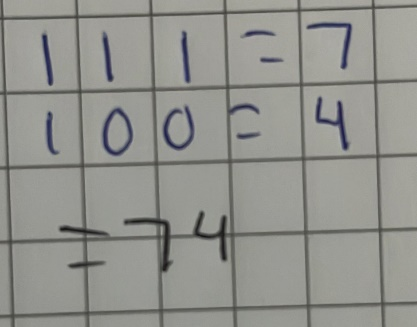 1 1 1 = 7
1 0 0 = 4
= 74